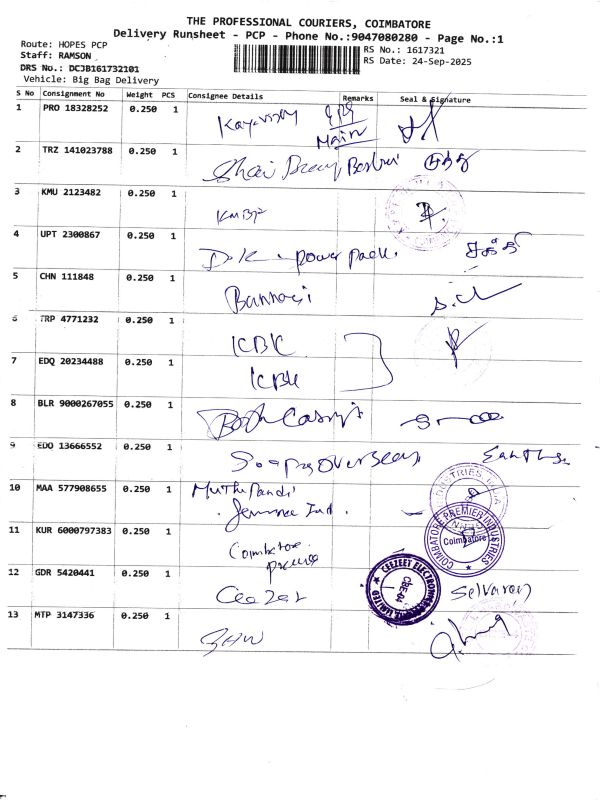 THE PROFESSIONAL COURIERS, COIMBATORE
Delivery Runsheet - PCP - Phone No.:9047080280 - Page No.:1
Route: HOPES PCP
RS No.: 1617321
Staff: RAMSON
RS Date: 24-Sep-2025
DRS No.: DCJB161732101
Vehicle: Big Bag Delivery
S No Consignment No Weight PCS Consignee Details Remarks Seal & Signature
1 PRO 18328252 0.250 1
Main
2 TRZ 141023788 0.250 1
3 KMU 2123482 0.250 1
4 UPT 2300867 0.250 1 D.K. power pack.
5 CHN 111848 0.250 1 Bannari
6 TRP 4771232 0.250 1 KBK
7 EDQ 20234488 0.250 1 KBK
8 BLR 9000267055 0.250 1
9 EDO 13666552 0.250 1 overseas
10 MAA 577908655 0.250 1 Muthu Pandi
Ind.
11 KUR 6000797383 0.250 1 Coimbatore
COIMBATORE PREMIER INDUSTRIES
Coimbatore
12 GDR 5420441 0.250 1 Ceezet Selvaraj
CEEZEET ELECTRONICS PRIVATE LIMITED
CBE-04
13 MTP 3147336 0.250 1